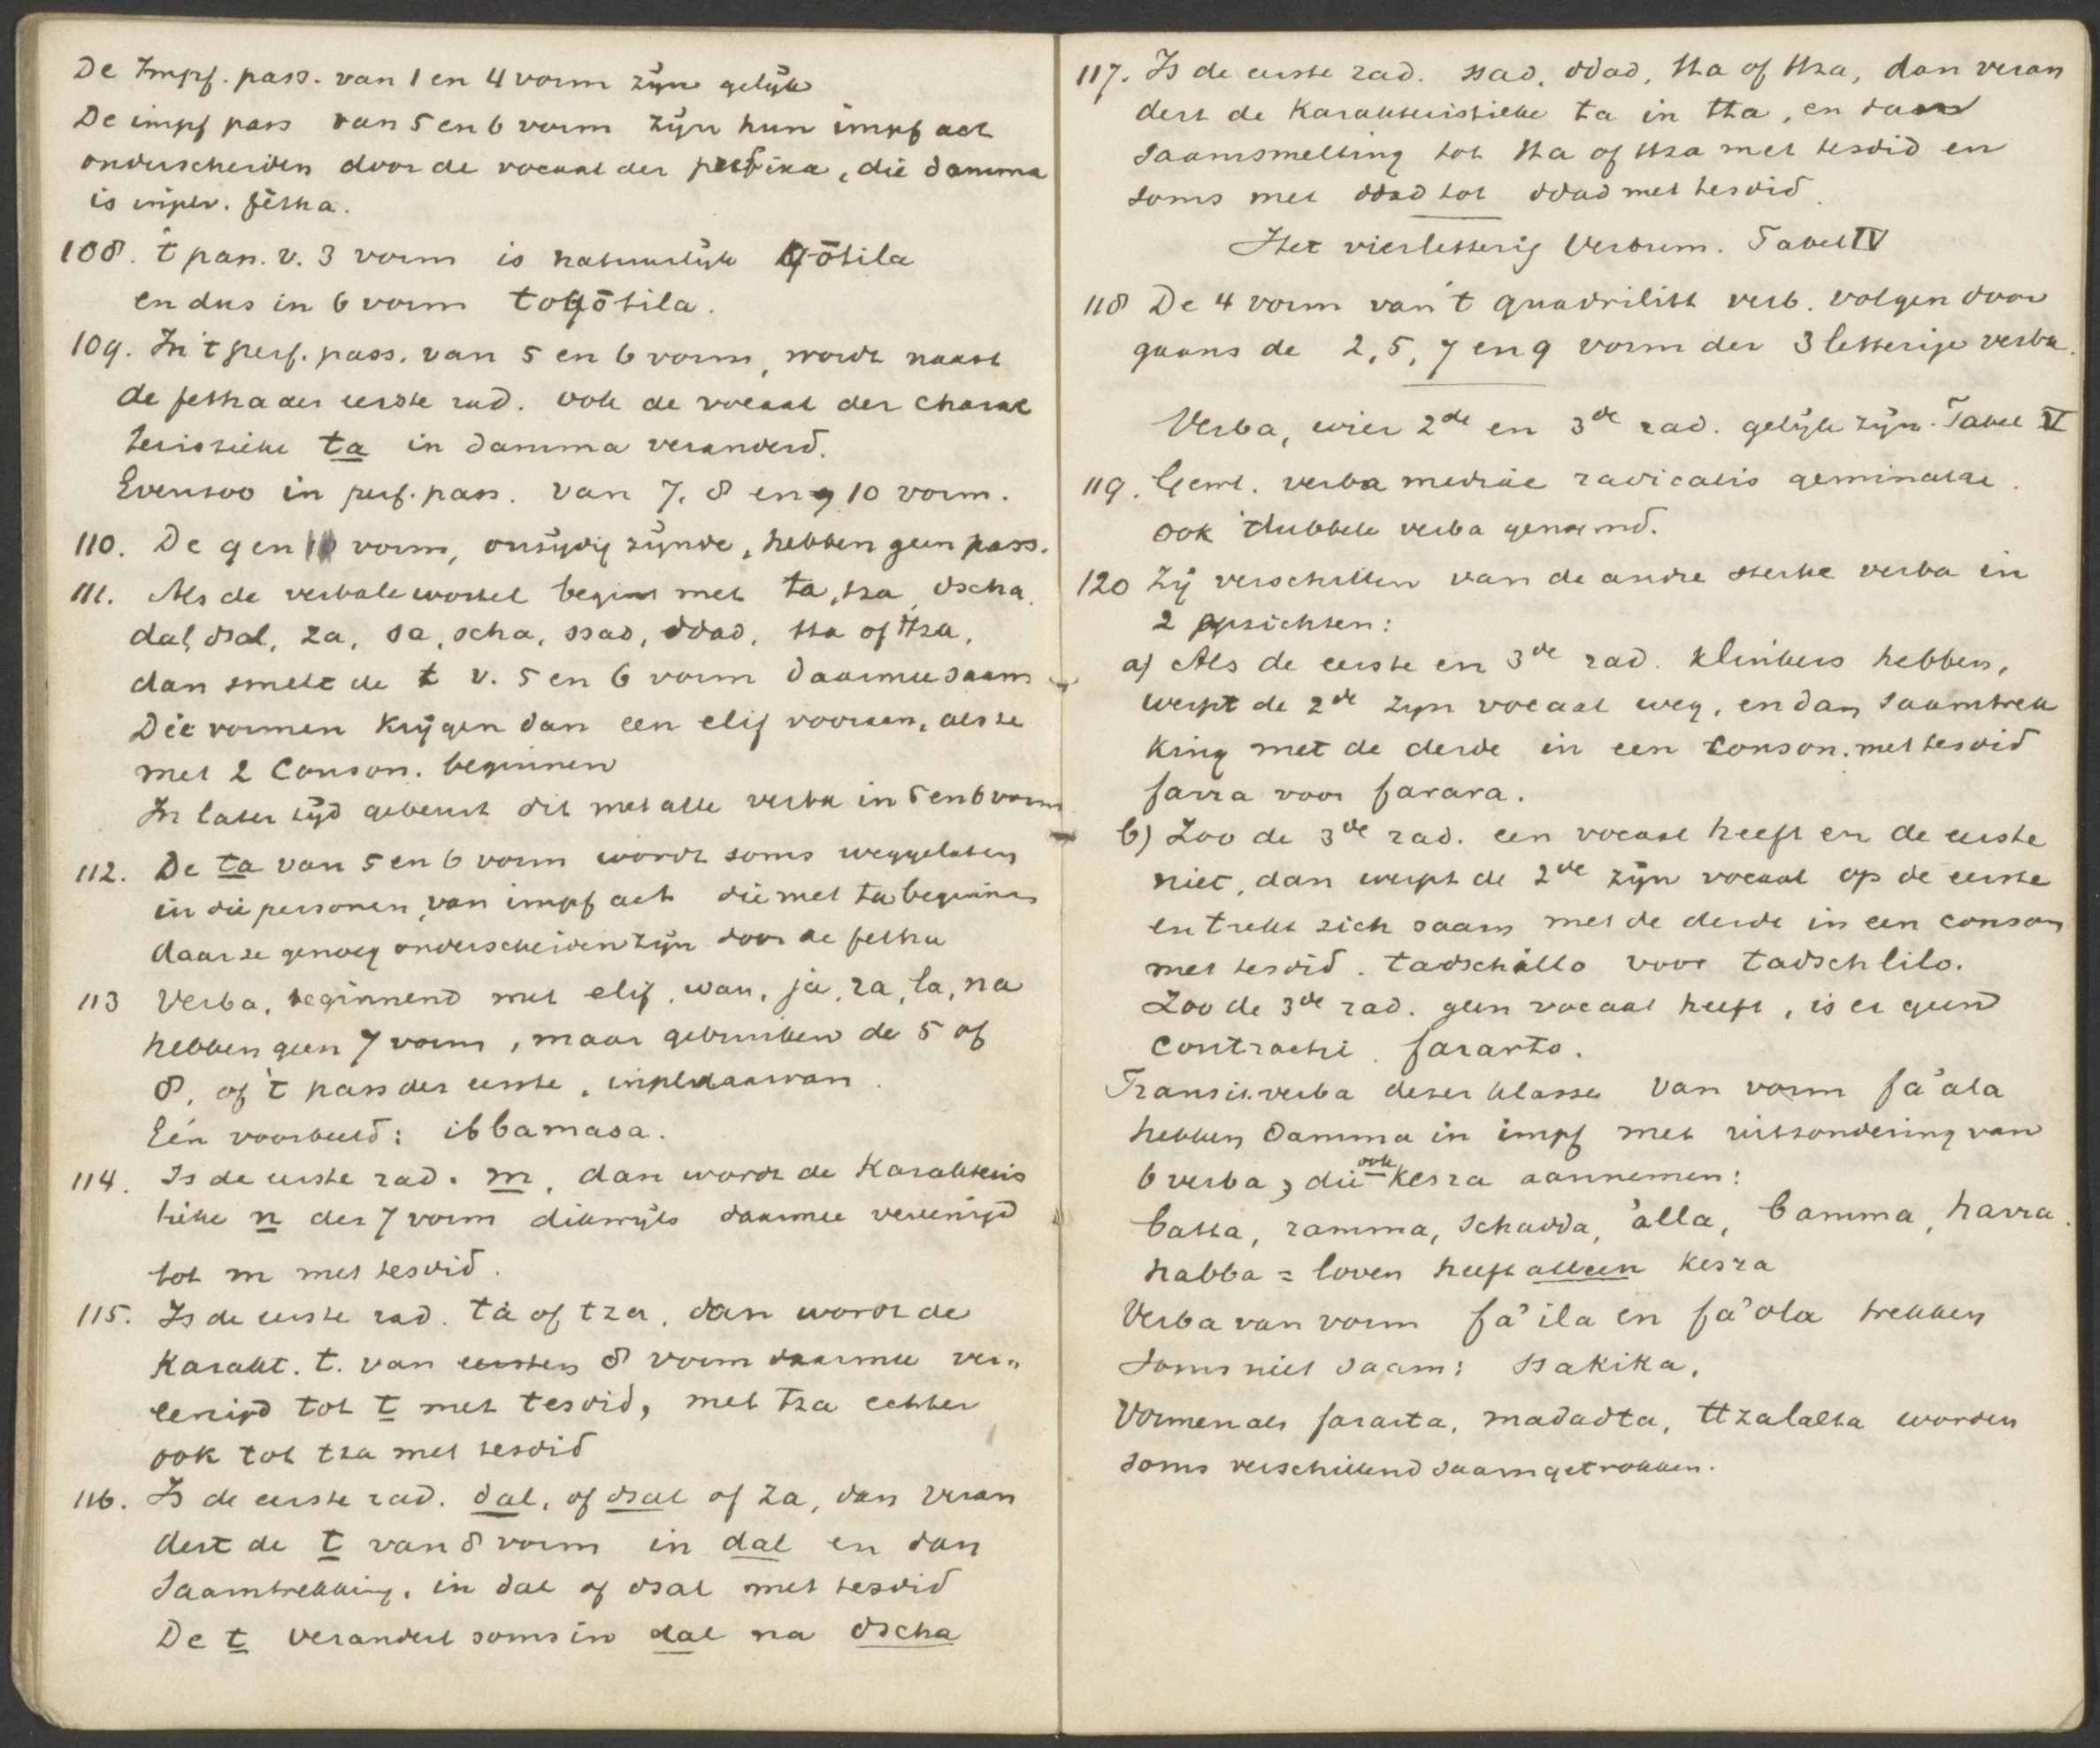 De Impf. pass. van 1 en 4 vorm zijn gelijk
De impf pass van 5 en 6 vorm zijn hun impf act
onderscheiden door de vocaal der prefixa, die damma
is inplv. fètha.
108. 't pass. v. 3 vorm is natuurlijk qōtila
en dus in 6 vorm toqōtila.
109. In 't perf. pass. van 5 en 6 vorm, wordt naast
de fetha der eerste rad. ook de vocaal der charak
teristieke ta in damma veranderd.
Evenzoo in perf. pass. van 7, 8 en 10 vorm.
110. De 9 en 11 vorm, onzijdig zijnde, hebben geen pass.
111. Als de verbale wortel begint met ta, tza, dscha,
dal, dsal, za, sa, scha, ssad, ddad, tta of ttza,
dan smelt de t v. 5 en 6 vorm daarmee saam
Die vormen krijgen dan een elif vooraan, als ze
met 2 conson. beginnen
In later tijd gebeurt dit met alle verba in 5 en 6 vorm
112. De ta van 5 en 6 vorm wordt soms weggelaten
in die personen van impf act die met ta beginnen
daar ze genoeg onderscheiden zijn door de fetha
113 Verba, beginnend met elif, wau, ja, ra, la, na
hebben geen 7 vorm, maar gebruiken de 5 of
8, of 't pass der eerste, inpl. daarvan.
Eén voorbeeld: ibbamasa.
114. Is de eerste rad. m, dan wordt de karakteris
tieke n der 7 vorm dikwijls daarmee vereenigd
tot m met tesdid.
115. Is de eerste rad. ta of tza, dan wordt de
karakt. t. van eersten 8 vorm daarmee ver„
eenigd tot t met tesdid, met tza echter
ook tot tza met tesdid
116. Is de eerste rad. dal, of dsal of za, dan veran
dert de t van 8 vorm in dal en dan
saamtrekking, in dal of dsal met tesdid
De t verandert soms in dal na dscha
117. Is de eerste rad. ssad, ddad, tta of ttza, dan veran
dert de karakteristieke ta in tta, en dan
saamsmelting tot tta of ttza met tesdid en
soms met ddad tot ddad met tesdid.
Het vierletterig Verbum. Tabel IV
118 De 4 vorm van 't quadrilitt verb. volgen door
gaans de 2, 5, 7 en 9 vorm der 3 letterige verba.
Verba, wier 2de en 3de rad. gelijk zijn. Tabel V
119. Geml. verba mediae radicalis geminatae.
ook dubbele verba genoemd.
120 Zij verschillen van de andre sterke verba in
2 opzichten:
a) Als de eerste en 3de rad. klinkers hebben,
werpt de 2de zijn vocaal weg, en dan saamtrek
king met de derde in een conson. met tesdid
farra voor farara.
b) Zoo de 3de rad. een vocaal heeft en de eerste
niet, dan werpt de 2de zijn vocaal op de eerste
en trekt zich saam met de derde in een conson
met tesdid. tadschillo voor tadschlilo.
Zoo de 3de rad. geen vocaal heeft, is er geen
contractie. fararto.
Transit. verba dezer klasse van vorm fa'ala
hebben damma in impf met uitzondering van
6 verba, die ook kesra aannemen:
batta, ramma, schadda, 'alla, bamma, harra.
habba = loven heeft alleen kesra
Verba van vorm fa'ila en fa'ola trekken
soms niet saam: ssakika,
Vormen als fararta, madadta, ttzalalta worden
soms verschillend saamgetrokken.